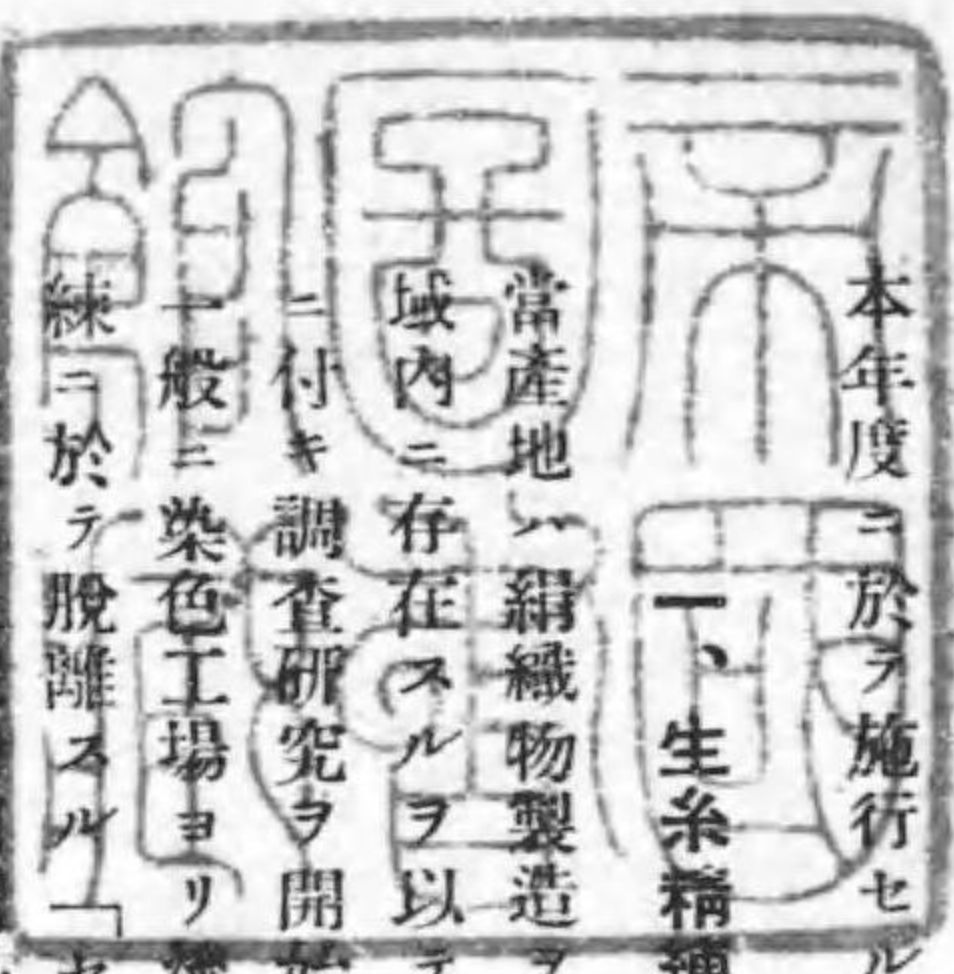 本年度ニ於テ施行セル
一、生糸精練
當產地ハ絹織物製造ヲ
域內ニ存在スルヲ以テ
ニ付キ調査硏究ヲ開始
一般ニ染色工場ヨリ
練ニ於テ脫離スル「セ
帝國圖書館藏